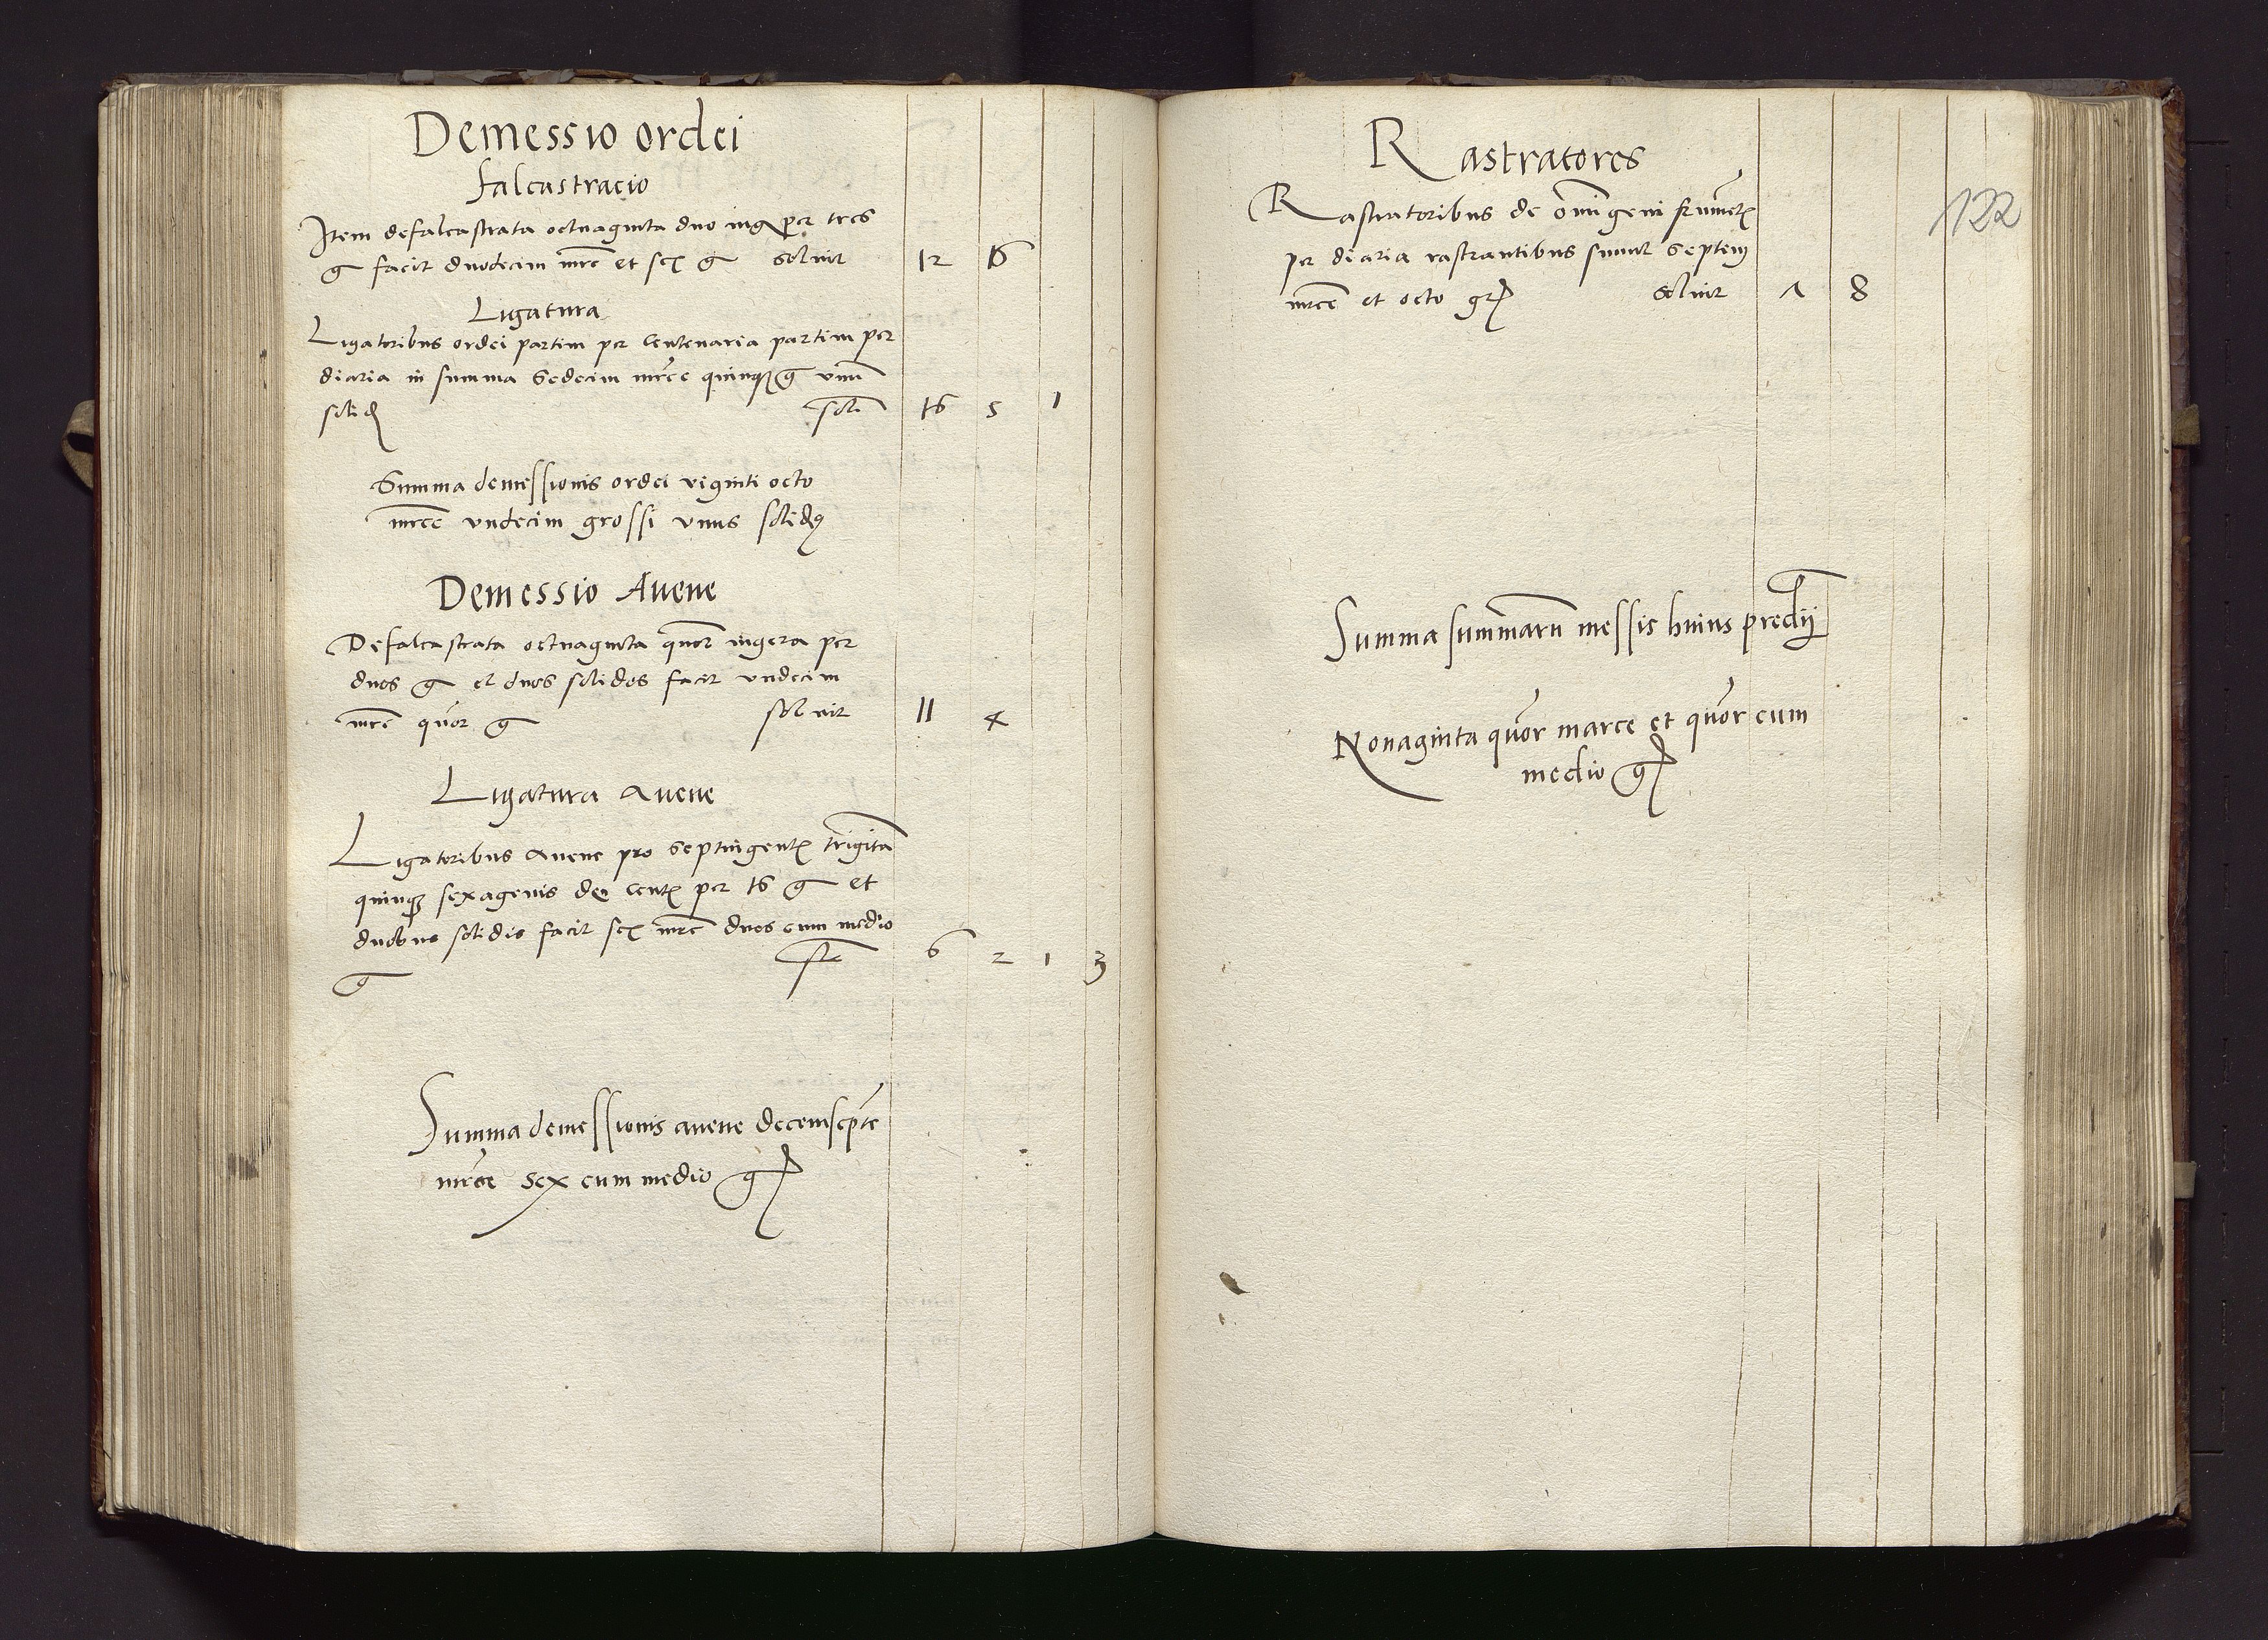 Demessio ordei
falcastracio
Item defalcastrata octuaginta duo iug per tres
g facit duodecim mrc et sex g soluit 12 6
Ligatura
Ligatoribus ordei partim per centenaria partim per
diaria in summa sedecim mrce quinq g vnū
solid sol 16 5 1
Summa demessionis ordei viginti octo
mrce vndecim grossi vnus solidq
Demessio Avene
Defalcastrata octuaginta quor iugera per
duos g et duos solidos facit vndecim
mrc quor g soluit 11 4
Ligatura avene
Ligatoribus avene pro septingent trigīta
quinq sexagenis de cent per 16 g et
duobus solidis facit sex mrc duos cum medio
g 6 2 1 3
Summa demessionis avene decemsepte
mrce sex cum medio g
Rastratores
Rastratoribus de omīgeni frumēt
per diaria rastrantibus summ septem
mrce et octo gr soluit 7 8
122
Summa summarū messis huius predij
Nonaginta quor marce et quor cum
medio g